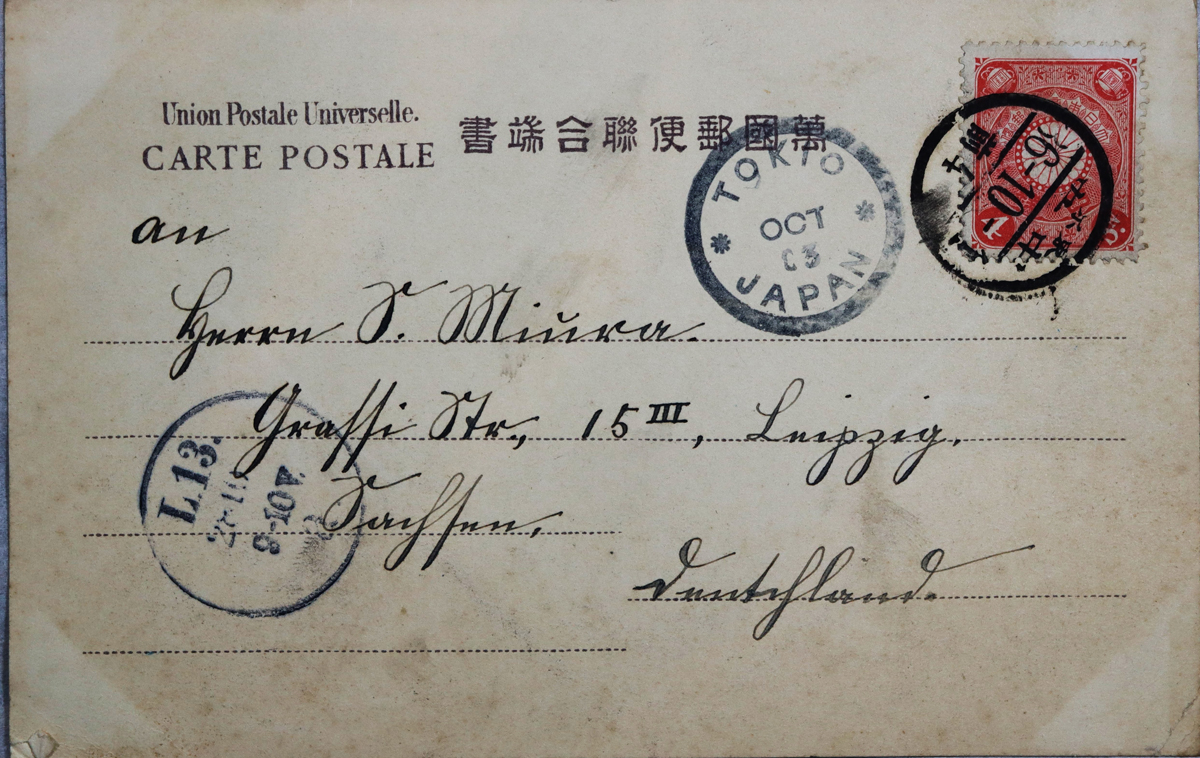 Union Postale Universelle.
CARTE POSTALE
書端合聯便郵國萬
TOKIO
OCT
03
JAPAN
an
Herrn S. Miura.
Grassi Str., 15 III, Leipzig.
Sachsen,
Deutchland.
L.13.
9-10V.
4